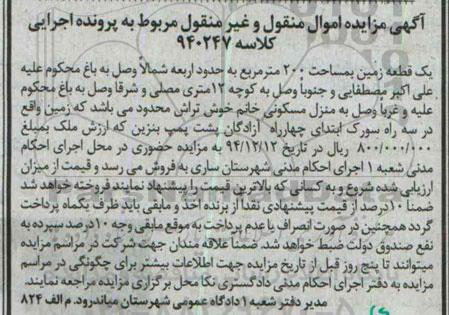 آگهی مزایده اموال منقول و غیر منقول مربوط به پرونده اجرایی
کلاسه ۹۴۰۲۴۷
یک قطعه زمین بمساحت ۲۰۰ مترمربع به حدود اربعه شمالاً وصل به باغ محکوم علیه
علی اکبر مصطفایی و جنوباً وصل به کوچه ۱۲متری مصلی و شرقا وصل به باغ محکوم
علیه و غرباً وصل به منزل مسکونی خانم خوش تراش محدود می باشد که زمین واقع
در سه راه سورک ابتدای چهارراه آزادگان پشت پمپ بنزین که ارزش ملک بمبلغ
۸۰۰/۰۰۰/۰۰۰ ریال در تاریخ ۹۴/۱۲/۱۲ به مزایده حضوری در محل اجرای احکام
مدنی شعبه ۱ اجرای احکام مدنی شهرستان ساری به فروش می رسد و قیمت از میزان
ارزیابی شده شروع و به کسانی که بالاترین قیمت را پیشنهاد نمایند فروخته خواهد شد
ضمنا ۱۰درصد از قیمت پیشنهادی نقداً از برنده اخذ و مابقی باید ظرف یکماه پرداخت
گردد همچنین در صورت انصراف یا عدم پرداخت به موقع مابقی وجه ۱۰درصد سپرده به
نفع صندوق دولت ضبط خواهد شد. ضمناً علاقه مندان جهت شرکت در مراسم مزایده
میتوانند تا پنج روز قبل از تاریخ مزایده جهت اطلاعات بیشتر برای چگونگی در مراسم
مزایده به دفتر اجرای احکام مدنی دادگستری نکا محل برگزاری مزایده مراجعه نمایند.
مدیر دفتر شعبه ۱ دادگاه عمومی شهرستان میاندرود. م الف ۸۲۴